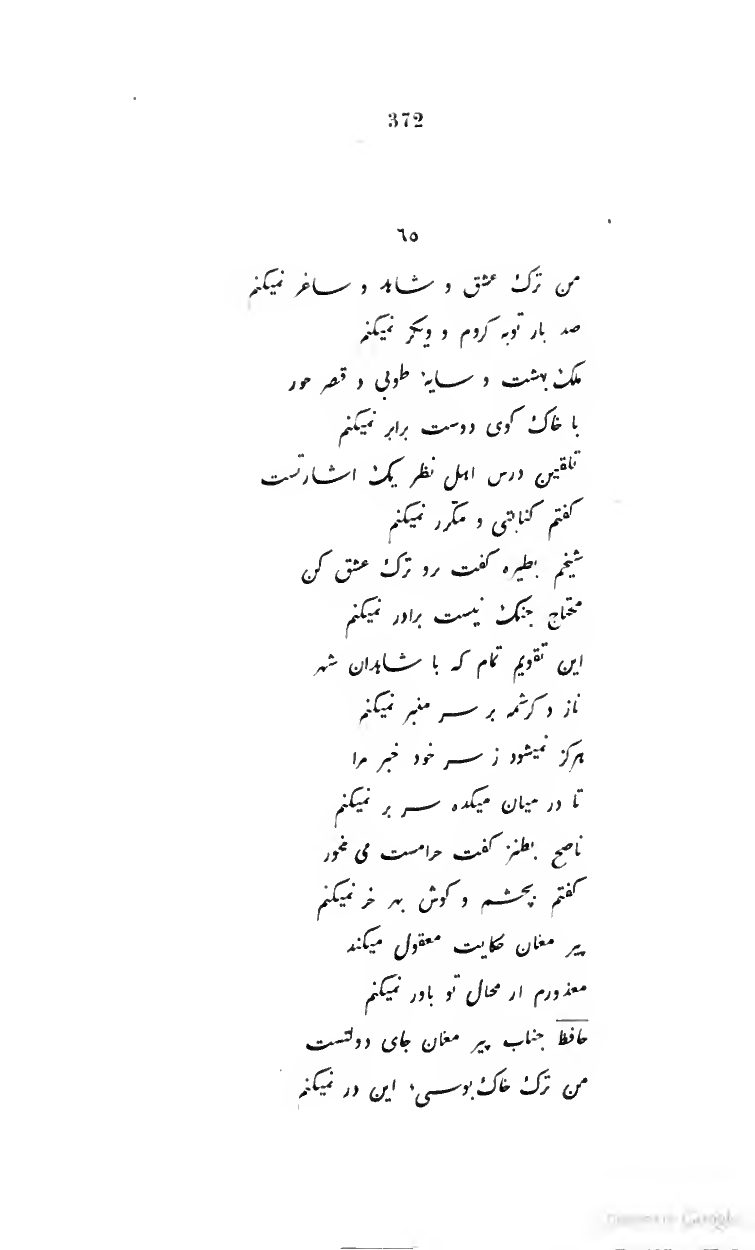 372
٦٥
من ترک عشق و شاهد و ساغر نمیکنم
صد بار توبه کردم و دیکر نمیکنم
ملک بهشت و سایهٔ طوبی و قصر حور
با خاک کوی دوست برابر نمیکنم
تلقین درس اهل نظر یک اشارتست
کفتم کنایتی و مکّرر نمیکنم
شیخم بطیره کفت برو ترک عشق کن
محتاج جنک نیست برادر نمیکنم
این تقویم تمام که با شاهدان شهر
ناز و کرشمه بر سر منبر نمیکنم
هرکز نمیشود ز سر خود خبر مرا
تا در میان میکده سر بر نمیکنم
ناصح بطنز کفت حرامست می مخور
کفتم بچشم و کوش بهر خر نمیکنم
پیر مغان حکایت معقول میکند
معذورم ار محال تو باور نمیکنم
حافظ جناب پیر مغان جای دولتست
من ترک خاک بوسیٔ این در نمیکنم
Google